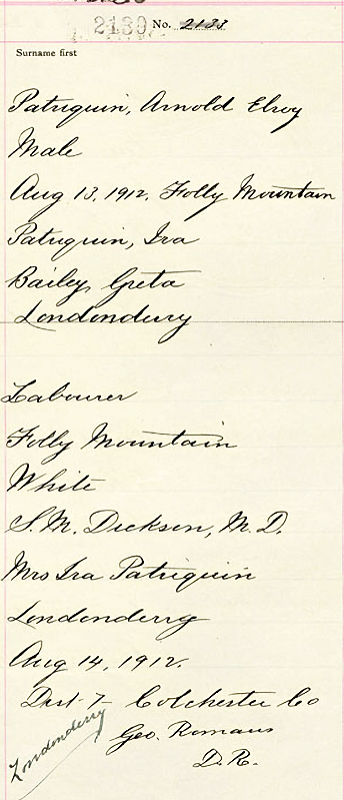 2130 No. 2133
Surname first
Patriquin, Arnold Elroy
Male
Aug 13, 1912, Folly Mountain
Patriquin, Ira
Bailey, Greta
Londonderry
Labourer
Folly Mountain
White
S. M. Dickson, M. D.
Mrs Ira Patriquin
Londonderry
Aug 14, 1912.
Dist 7 Colchester Co
Londonderry
Geo. Romans
D. R.